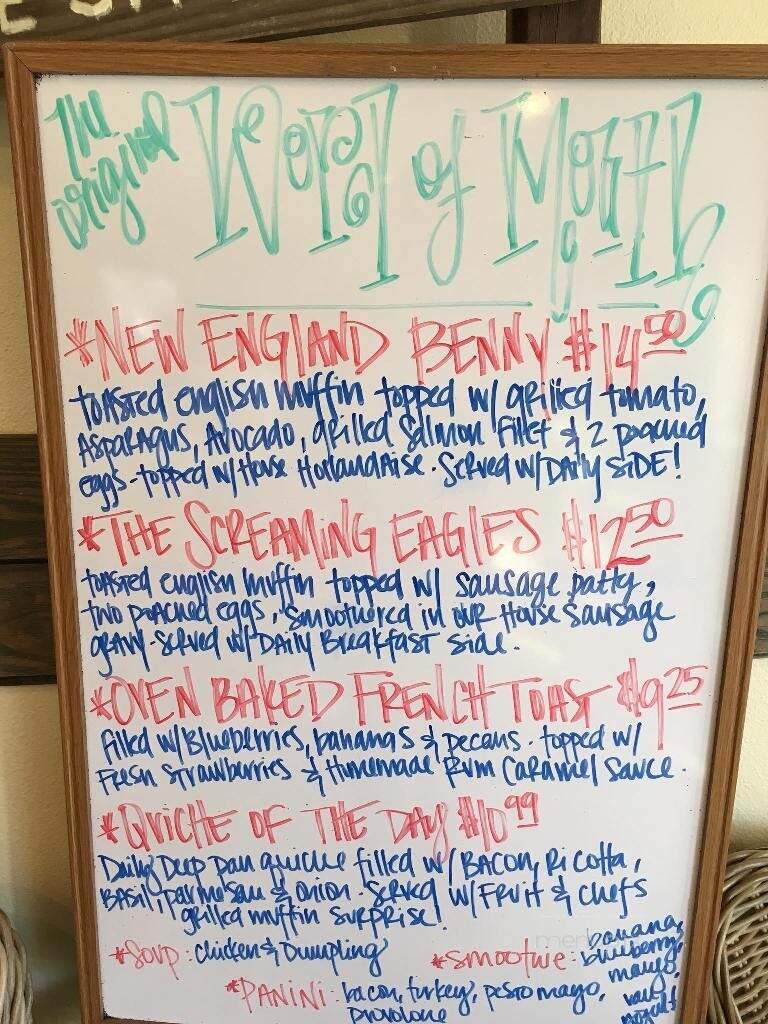 The Original Word of Mouth
*NEW ENGLAND BENNY $14.50
toasted english muffin topped w/ grilled tomato,
Asparagus, Avocado, grilled Salmon fillet & 2 poached
eggs - topped w/ House Hollandaise. Served w/ Daily SIDE!
*THE SCREAMING EAGLES $12.50
toasted english muffin topped w/ sausage patty,
two poached eggs, smoothered in our House Sausage
gravy - served w/ Daily Breakfast side.
*OVEN BAKED FRENCH TOAST $9.25
filled w/ Blueberries, bananas & pecans. topped w/
Fresh Strawberries & Homemade Rum Caramel Sauce.
*QUICHE OF THE DAY $10.99
Daily Deep pan quiche filled w/ BACON, Ricotta,
BASIL, parmesan & onion. Served w/ FRUIT & Chefs
grilled muffin surprise!
*Soup: Chicken & Dumpling
*Smoothie: banana, blueberry, mango, yogurt
*PANINI: bacon, turkey, pesto mayo,
provolone